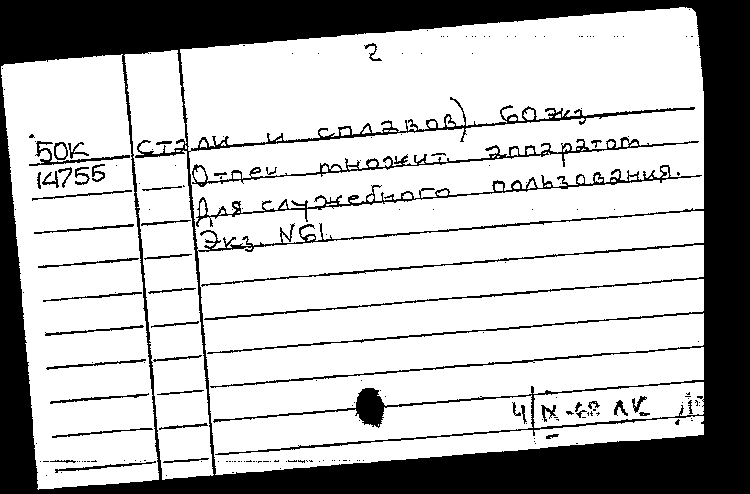 2
50К стали и сплавов). 60 экз
14755 Отпеч. множит. аппаратом.
Для служебного пользования.
Экз. N61.
4/IX-68 ЛК